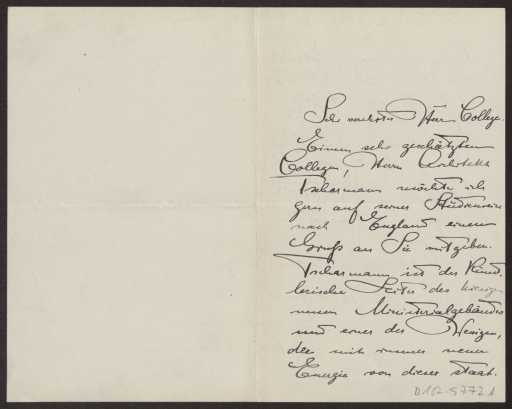 Sehr verehrter Herr College.
Einem sehr geschätzten
Collegen, Herrn Architekt
Tscharmann möchte ich
gern auf seiner Studienreise
nach England einen
Gruß an Sie mitgeben.
Tscharmann ist der Künst-
lerische Leiter des hiesigen
neuen Ministerialgebäudes
und einer der Wenigen,
der mit immer neuer
Energie von dieser staat-